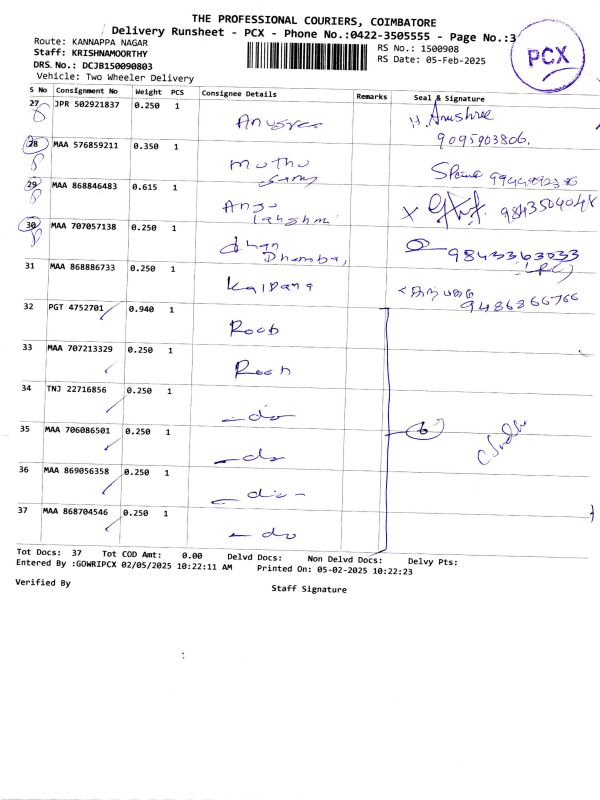 THE PROFESSIONAL COURIERS, COIMBATORE
Delivery Runsheet - PCX - Phone No.:0422-3505555 - Page No.:3
PCX
Route: KANNAPPA NAGAR
RS No.: 1500908
Staff: KRISHNAMOORTHY
RS Date: 05-Feb-2025
DRS. No.: DCJB150090803
Vehicle: Two Wheeler Delivery
S No Consignment No Weight PCS Consignee Details Remarks Seal & Signature
27 JPR 502921837 0.250 1
9095903806.
28 MAA 576859211 0.350 1 Mutho
Samy
29 MAA 868846483 0.615 1 Anju
Lakshmi
30 MAA 707057138 0.250 1
9843363033
31 MAA 868886733 0.250 1 Kalpana
9486366766
32 PGT 4752701 0.940 1 Roob
33 MAA 707213329 0.250 1
34 TNJ 22716856 0.250 1 - do
35 MAA 706086501 0.250 1 - do 6
36 MAA 869056358 0.250 1 - do -
37 MAA 868704546 0.250 1 - do
Tot Docs: 37 Tot COD Amt: 0.00 Delvd Docs: Non Delvd Docs: Delvy Pts:
Entered By :GOWRIPCX 02/05/2025 10:22:11 AM Printed On: 05-02-2025 10:22:23
Verified By
Staff Signature